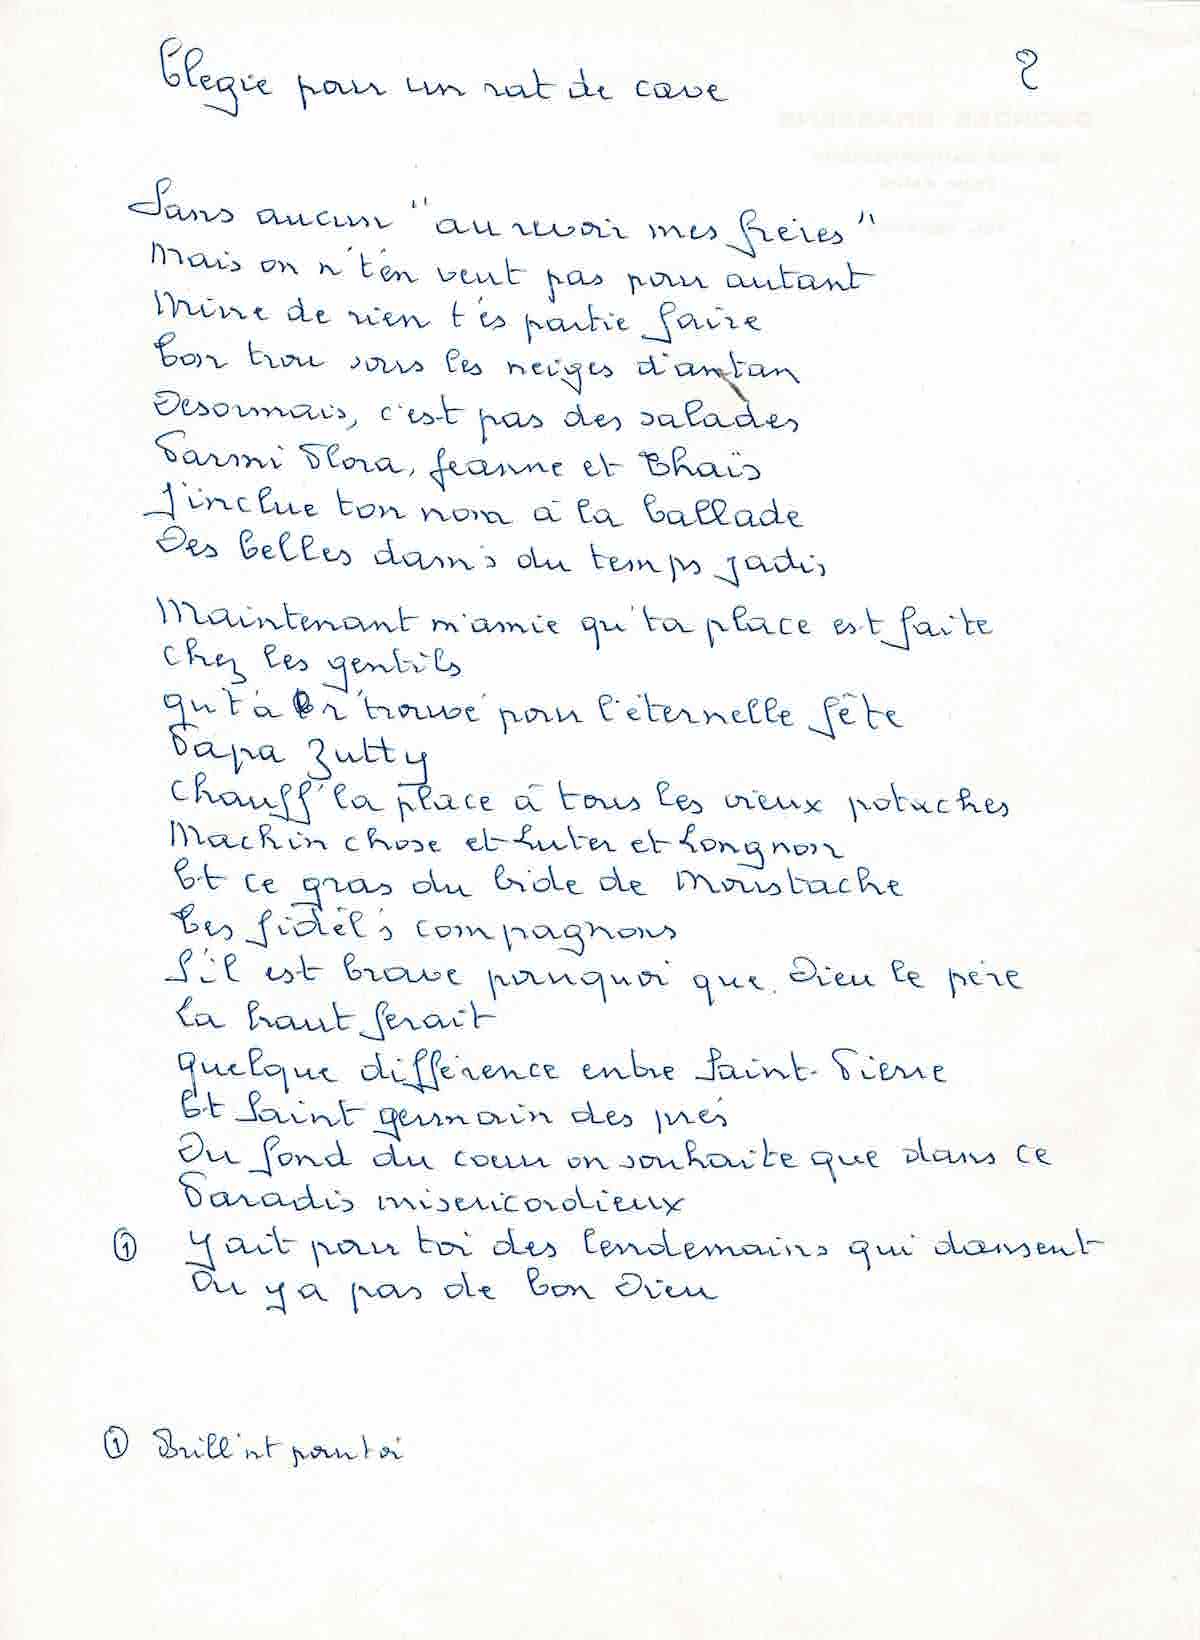 Elegie pour un rat de cave
2
Sans aucun "au revoir mes frères"
Mais on n't'en veut pas pour autant
Mine de rien t'es partie faire
Ton trou sous les neiges d'antan
Desormais, c'est pas des salades
Parmi Flora, Jeanne et Thaïs
J'inclue ton nom à la ballade
Des belles dam's du temps jadis
Maintenant m'amie qu'ta place est faite
chez les gentils
qu't'a r'trouvé pour l'éternelle fête
Papa Zutty
Chauff'la place à tous les vieux potaches
Machin chose et Luter et Longnon
Et ce gras du bide de Moustache
Tes fidèl's compagnons
S'il est brave pourquoi que Dieu le père
La haut ferait
quelque différence entre Saint-Pierre
Et Saint germain des prés
Du fond du cœur on souhaite que dans ce
Paradis misericordieux
① Y ait pour toi des lendemains qui dansent
Ou y a pas de bon Dieu
① Brill'nt pour toi